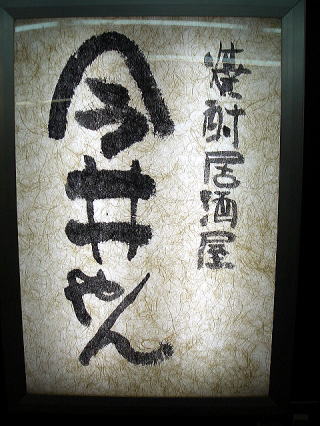 焼酎居酒屋
今井やん